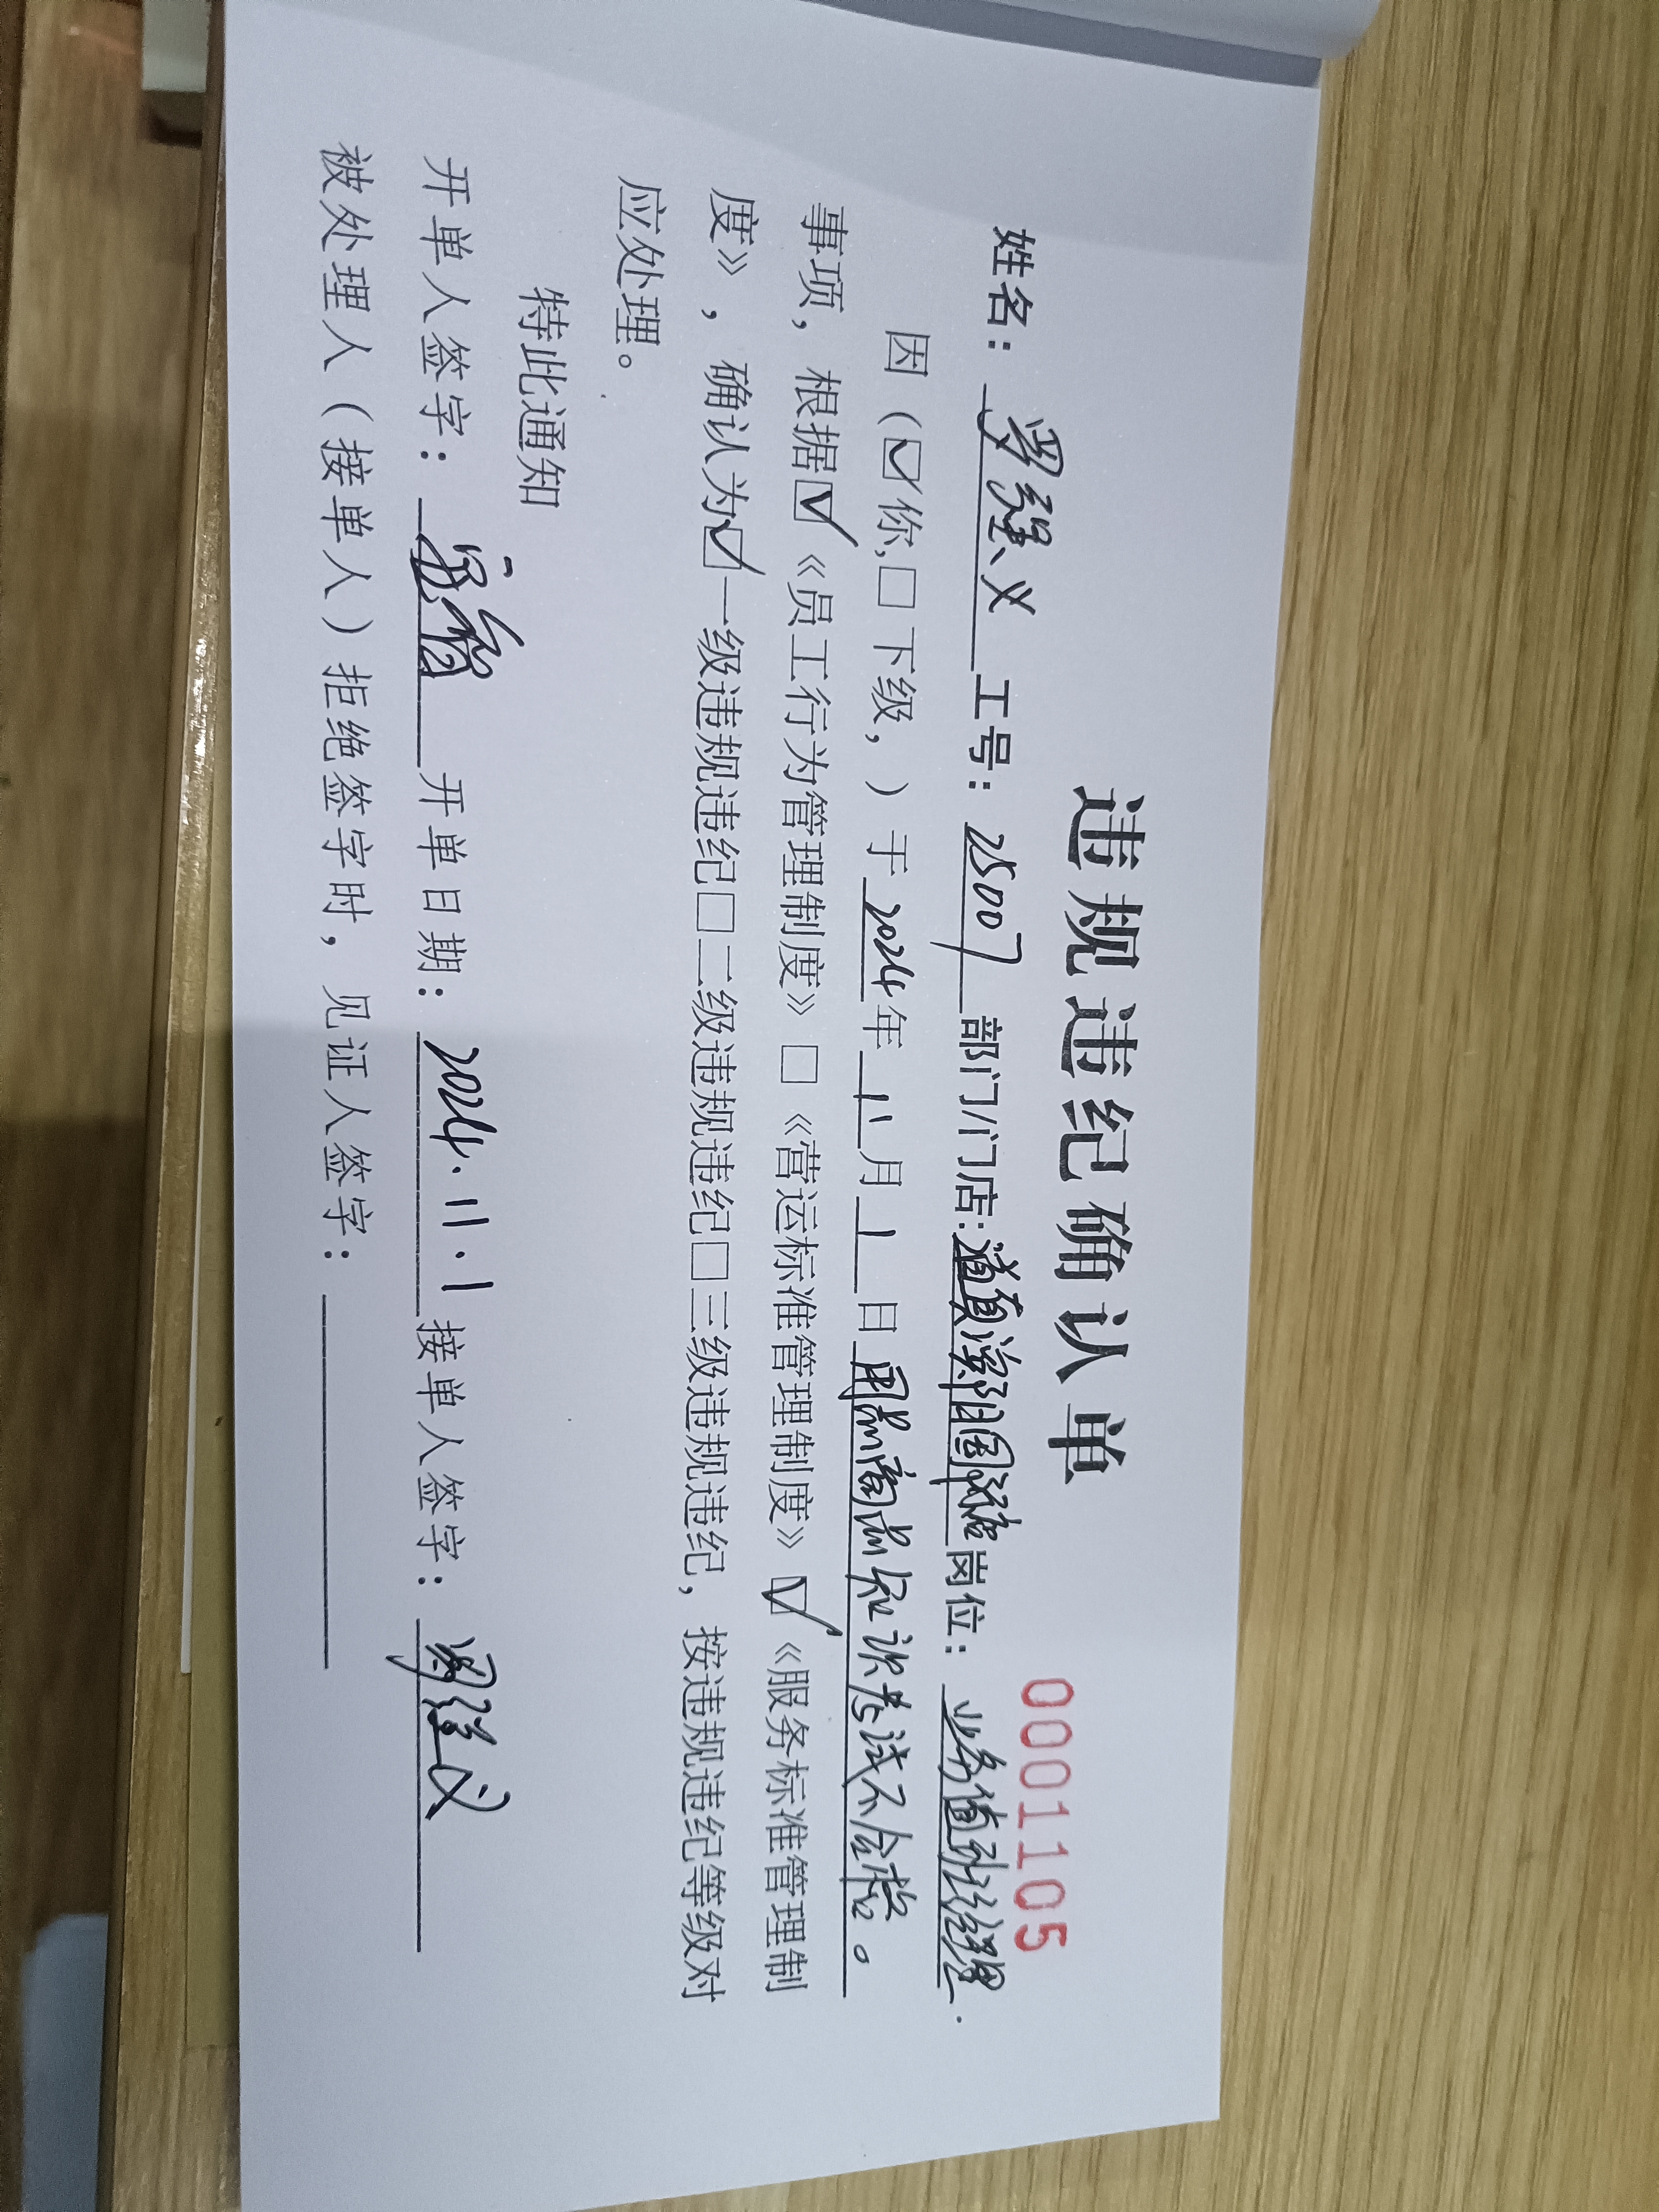 违规违纪确认单
0001105
姓名： 罗强义 工号：25007 部门/门店: 道真 岗位：业务值班经理.
因（☑你,□下级，）于2024年11月1日用品商品知识考试不合格。
事项，根据☑《员工行为管理制度》□《营运标准管理制度》☑《服务标准管理制
度》，确认为☑一级违规违纪□二级违规违纪□三级违规违纪，按违规违纪等级对
应处理。
特此通知
开单人签字： 开单日期：2024.11.1 接单人签字：罗强义
被处理人（接单人）拒绝签字时，见证人签字：